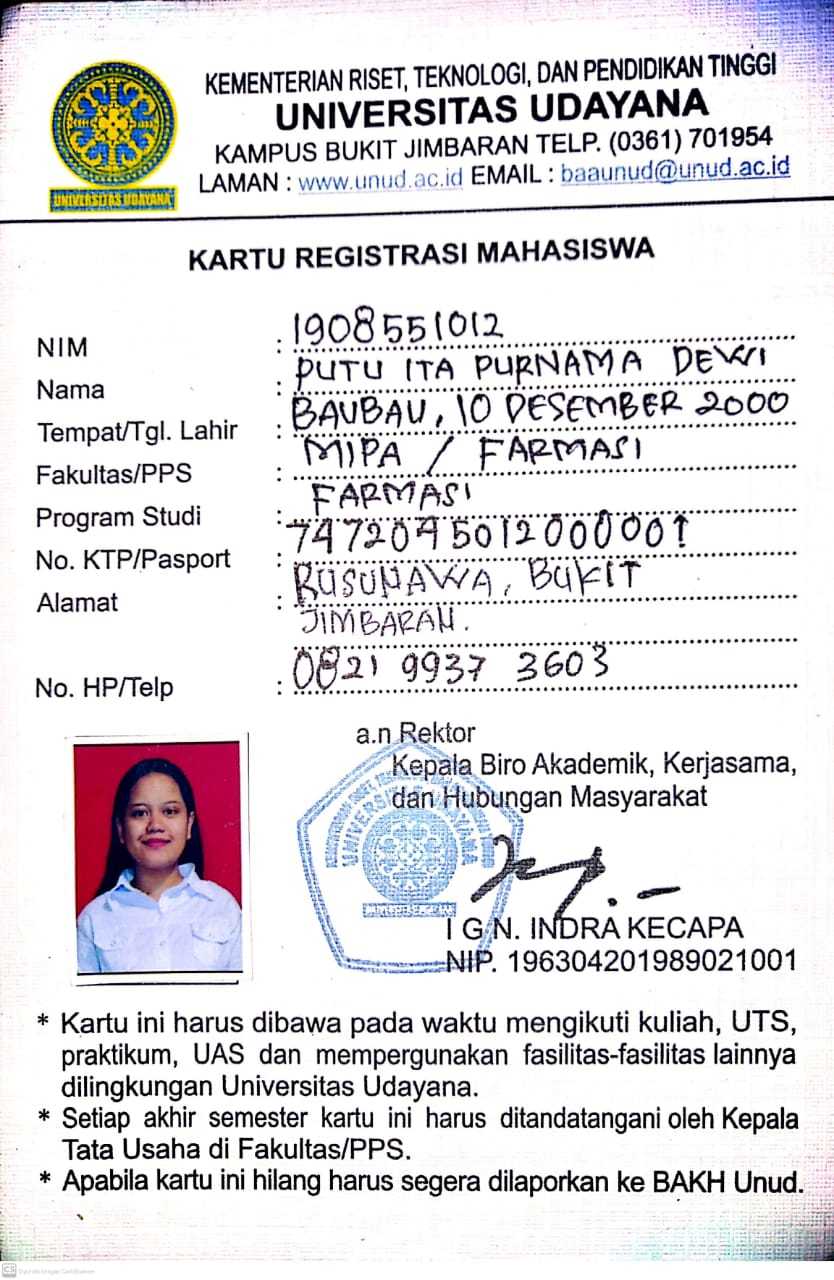 KEMENTERIAN RISET, TEKNOLOGI, DAN PENDIDIKAN TINGGI
UNIVERSITAS UDAYANA
KAMPUS BUKIT JIMBARAN TELP. (0361) 701954
LAMAN : www.unud.ac.id EMAIL : baaunud@unud.ac.id
UNIVERSITAS UDAYANA
KARTU REGISTRASI MAHASISWA
NIM : 1908551012
Nama : PUTU ITA PURNAMA DEWI
Tempat/Tgl. Lahir : BAUBAU, 10 DESEMBER 2000
Fakultas/PPS : MIPA / FARMASI
Program Studi : FARMASI
No. KTP/Pasport : 7472045012000001
Alamat : RUSUNAWA, BUKIT
JIMBARAN.
No. HP/Telp : 0821 9937 3603
a.n Rektor
Kepala Biro Akademik, Kerjasama,
dan Hubungan Masyarakat
UNIVERSITAS UDAYANA
I G N. INDRA KECAPA
NIP. 196304201989021001
* Kartu ini harus dibawa pada waktu mengikuti kuliah, UTS,
praktikum, UAS dan mempergunakan fasilitas-fasilitas lainnya
dilingkungan Universitas Udayana.
* Setiap akhir semester kartu ini harus ditandatangani oleh Kepala
Tata Usaha di Fakultas/PPS.
* Apabila kartu ini hilang harus segera dilaporkan ke BAKH Unud.
CS